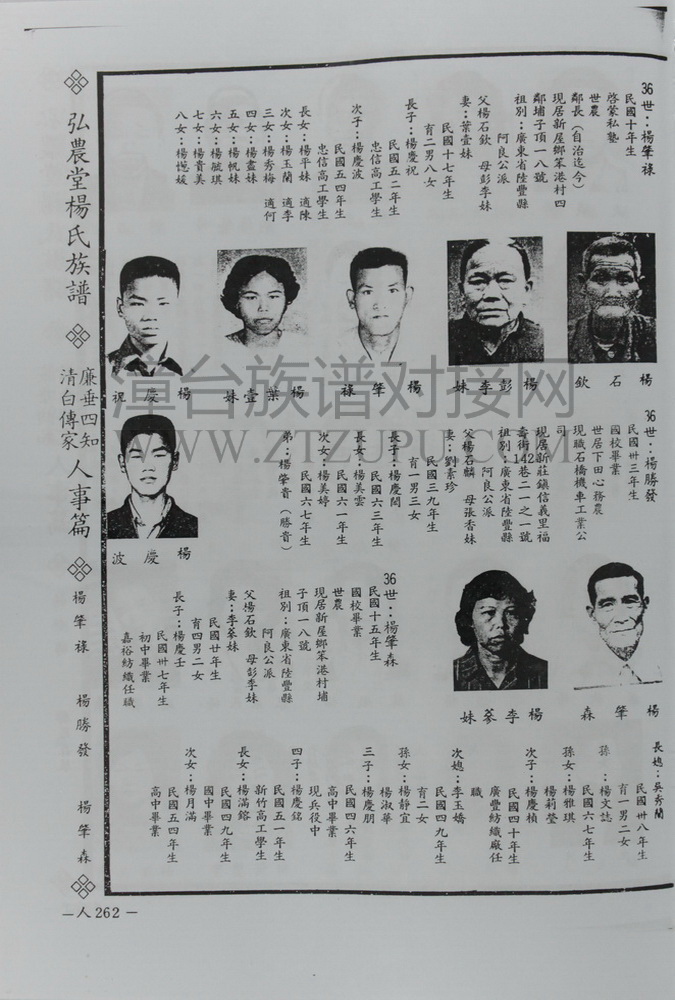 36世：楊肇祿
民國十年生
啓蒙私塾
世農
鄰長（自治迄今）
現居新屋鄉笨港村四
鄰埔子頂一八號
祖別：廣東省陸豐縣
阿良公派
父楊石欽　母彭李妹
妻：葉壹妹
民國十七年生
育二男八女
長子：楊慶祝
民國五二年生
忠信高工學生
次子：楊慶波
民國五四年生
忠信高工學生
長女：楊平妹　適陳
次女：楊玉蘭　適李
三女：楊秀梅　適何
四女：楊盡妹
五女：楊帆妹
六女：楊毓琪
七女：楊貴美
八女：楊憶媛
楊石欽
楊彭李妹
楊肇祿
楊葉壹妹
楊慶祝
36世：楊勝發
民國卅三年生
國校畢業
世居下田心務農
現職石橋機車工業公
司
現居新莊鎮信義里福
壽街142巷二一之一號
祖別：廣東省陸豐縣
阿良公派
父楊石麟　母張香妹
妻：劉素珍
民國三九年生
育一男三女
長子：楊慶閔
民國六三年生
長女：楊美雲
民國六一年生
次女：楊美婷
民國六七年生
弟：楊肇音（勝音）
楊慶波
36世：楊肇森
民國十五年生
國校畢業
世農
現居新屋鄉笨港村埔
子頂一八號
祖別：廣東省陸豐縣
阿良公派
父楊石欽　母彭李妹
妻：李蔘妹
民國廿年生
育四男二女
長子：楊慶壬
民國卅七年生
初中畢業
嘉裕紡織任職
楊肇森
楊李蔘妹
長媳：吳秀蘭
民國卅八年生
育一男二女
孫：楊文誌
民國六七年生
孫女：楊雅琪
楊莉瑩
次子：楊慶楨
民國四十年生
廣豐紡織廠任
職
次媳：李玉嬌
民國四九年生
育二女
孫女：楊靜宜
楊淑華
三子：楊慶朋
民國四六年生
高中畢業
現兵役中
四子：楊慶銘
民國五一年生
新竹高工學生
長女：楊滿鎔
民國四九年生
國中畢業
次女：楊月滿
民國五四年生
高中畢業
弘農堂楊氏族譜
廉垂四知
清白傳家
人事篇
楊肇祿　楊勝發　楊肇森
—人262—
漳台族谱对接网
WWW.ZTZUPU.COM